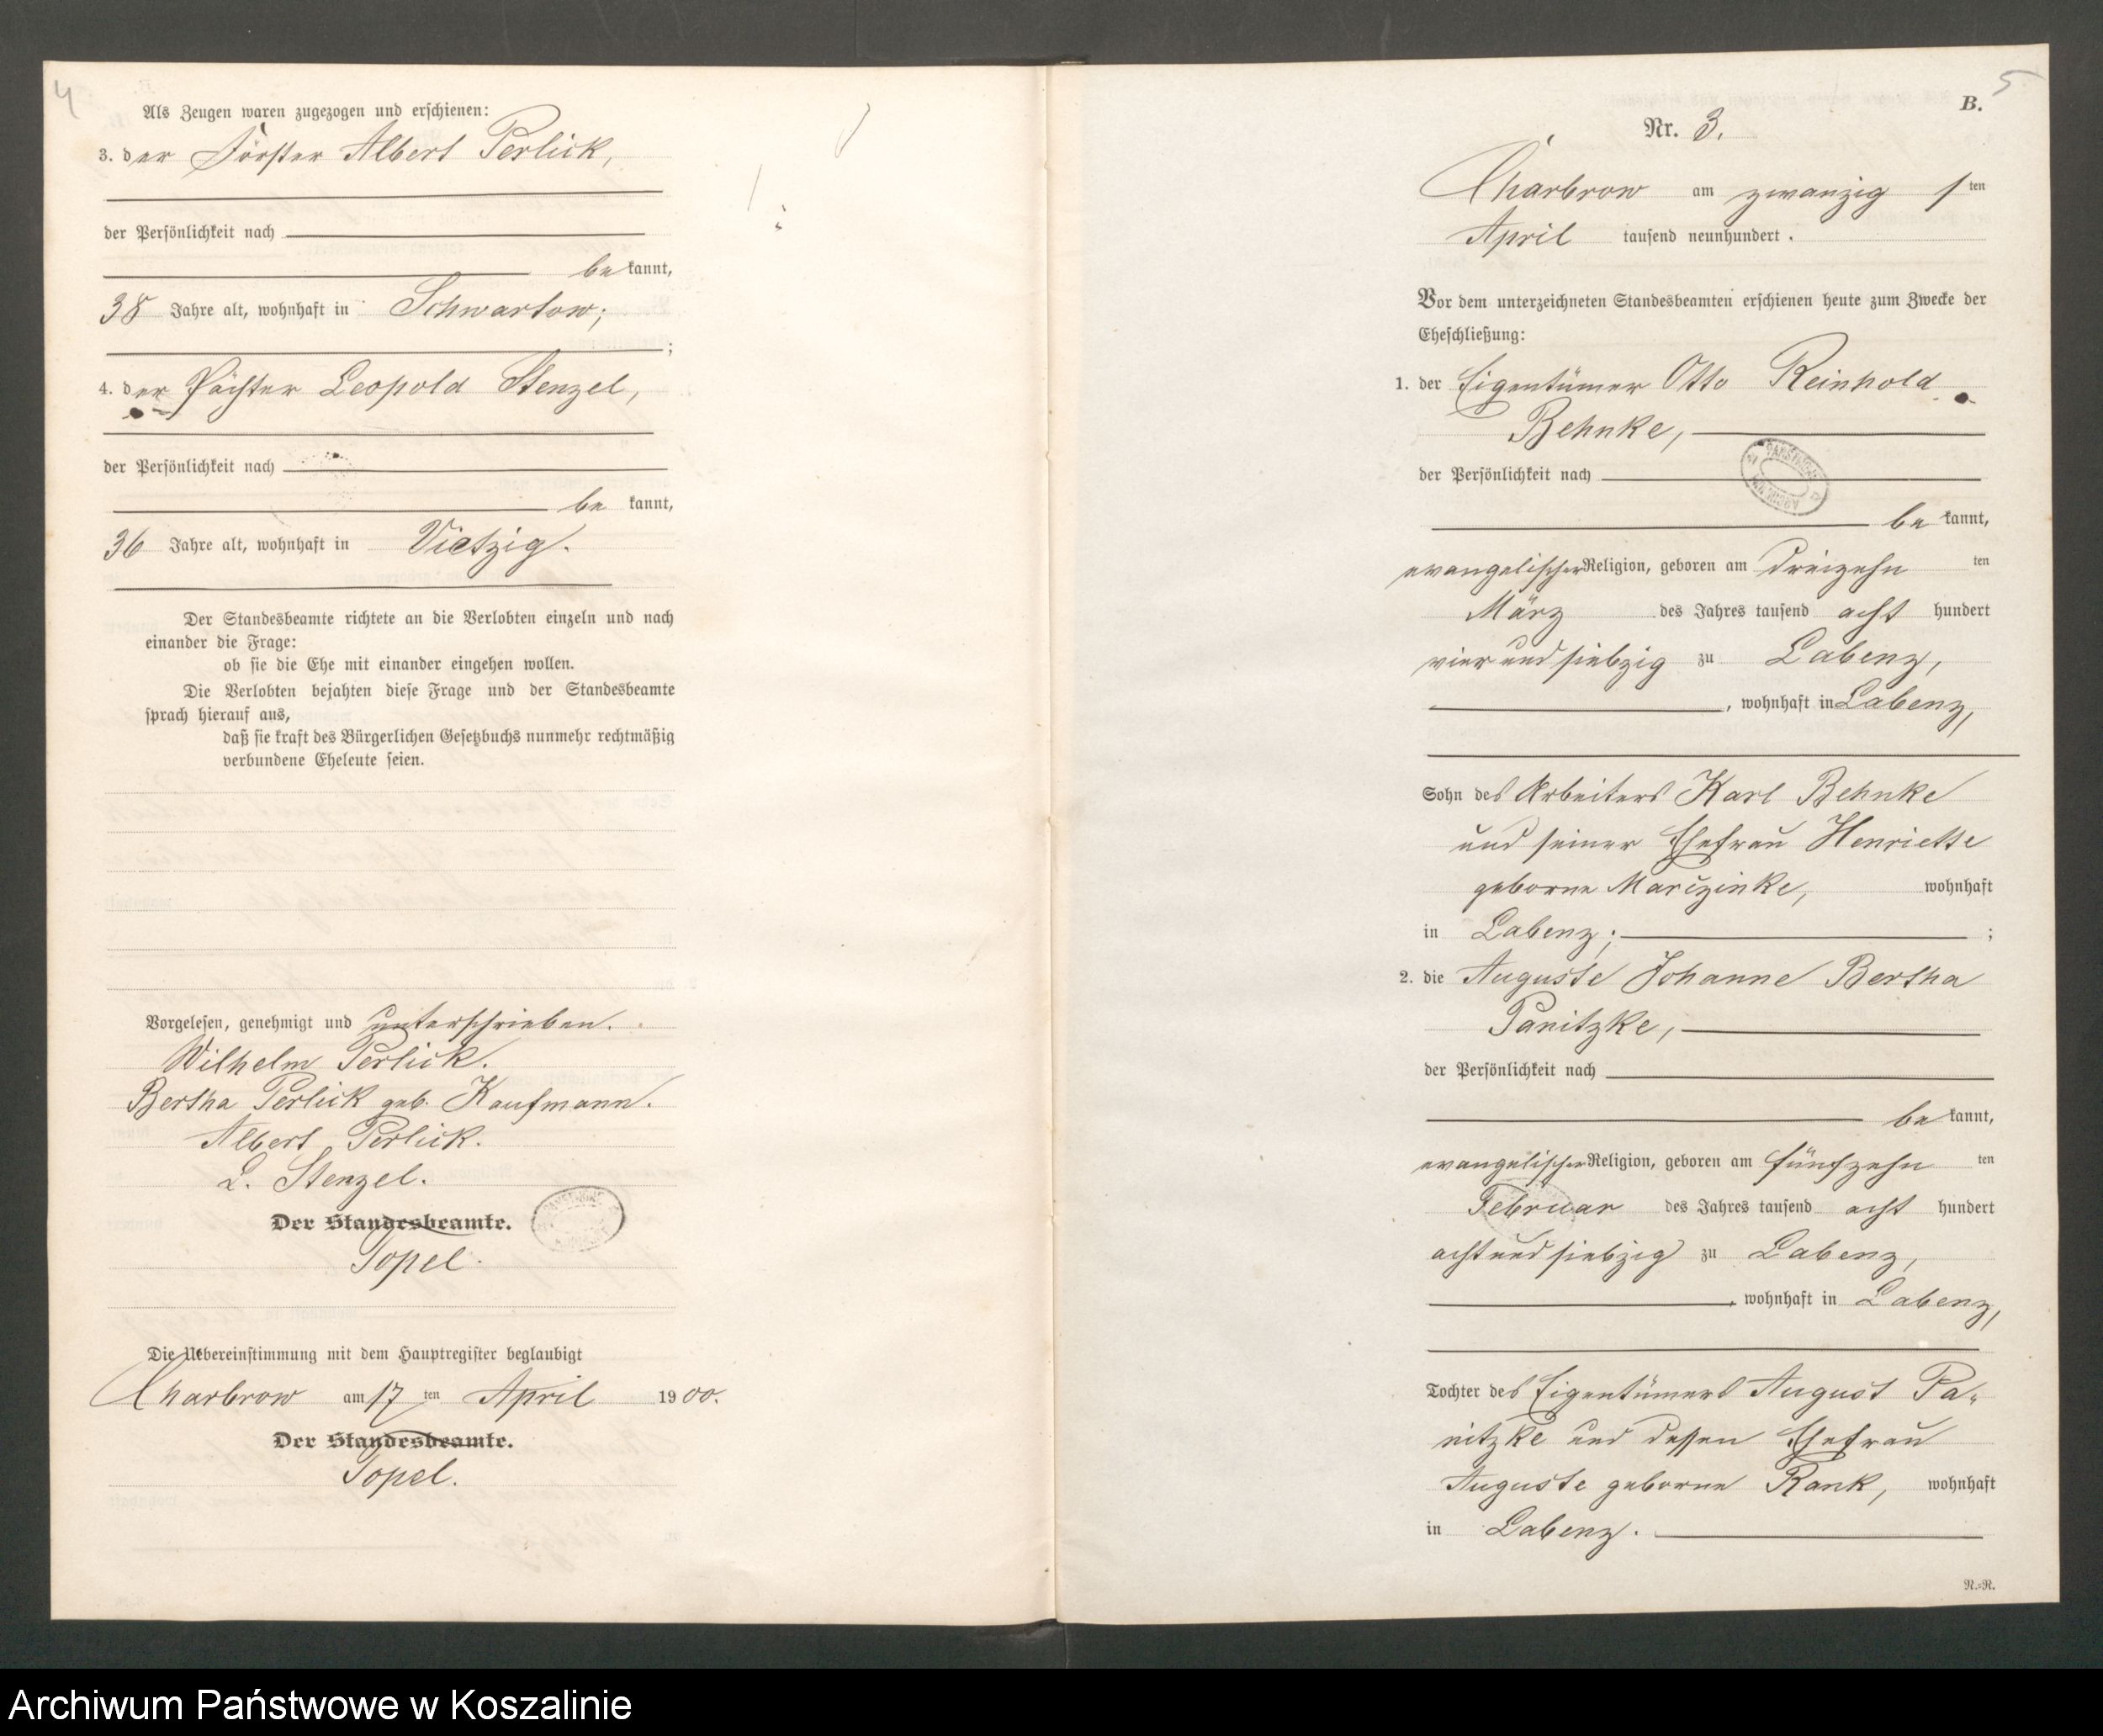 4
Als Zeugen waren zugezogen und erschienen:
3. der Förster Albert Perlick,
der Persönlichkeit nach
be kannt,
38 Jahre alt, wohnhaft in Schwartow;
;
4. der Pächter Leopold Stenzel,
der Persönlichkeit nach
be kannt,
36 Jahre alt, wohnhaft in Vietzig.
Der Standesbeamte richtete an die Verlobten einzeln und nach
einander die Frage:
ob sie die Ehe mit einander eingehen wollen.
Die Verlobten bejahten diese Frage und der Standesbeamte
sprach hierauf aus,
daß sie kraft des Bürgerlichen Gesetzbuchs nunmehr rechtmäßig
verbundene Eheleute seien.
Vorgelesen, genehmigt und unterschrieben.
Wilhelm Perlick.
Bertha Perlick geb. Kaufmann.
Albert Perlick.
L. Stenzel.
Der Standesbeamte.
Topel.
Die Uebereinstimmung mit dem Hauptregister beglaubigt
Charbrow am 17 ten April 1900.
Der Standesbeamte.
Topel.
5
B.
Nr. 3.
Charbrow am zwanzig sten
April tausend neunhundert .
Vor dem unterzeichneten Standesbeamten erschienen heute zum Zwecke der
Eheschließung:
1. der Eigentümer Otto Reinhold
Behnke,
der Persönlichkeit nach
be kannt,
evangelischer Religion, geboren am dreizehn ten
März des Jahres tausend acht hundert
vier und siebzig zu Labenz,
, wohnhaft in Labenz,
Sohn des Arbeiters Karl Behnke
und seiner Ehefrau Henriette
geborne Marczinke, wohnhaft
in Labenz; ;
2. die Auguste Johanne Bertha
Panitzke,
der Persönlichkeit nach
be kannt,
evangelischer Religion, geboren am fünfzehn ten
Februar des Jahres tausend acht hundert
acht und siebzig zu Labenz,
, wohnhaft in Labenz,
Tochter des Eigentümers August Pa-
nitzke und dessen Ehefrau
Auguste geborne Rank, wohnhaft
in Labenz.
R.=R.
Archiwum Państwowe w Koszalinie